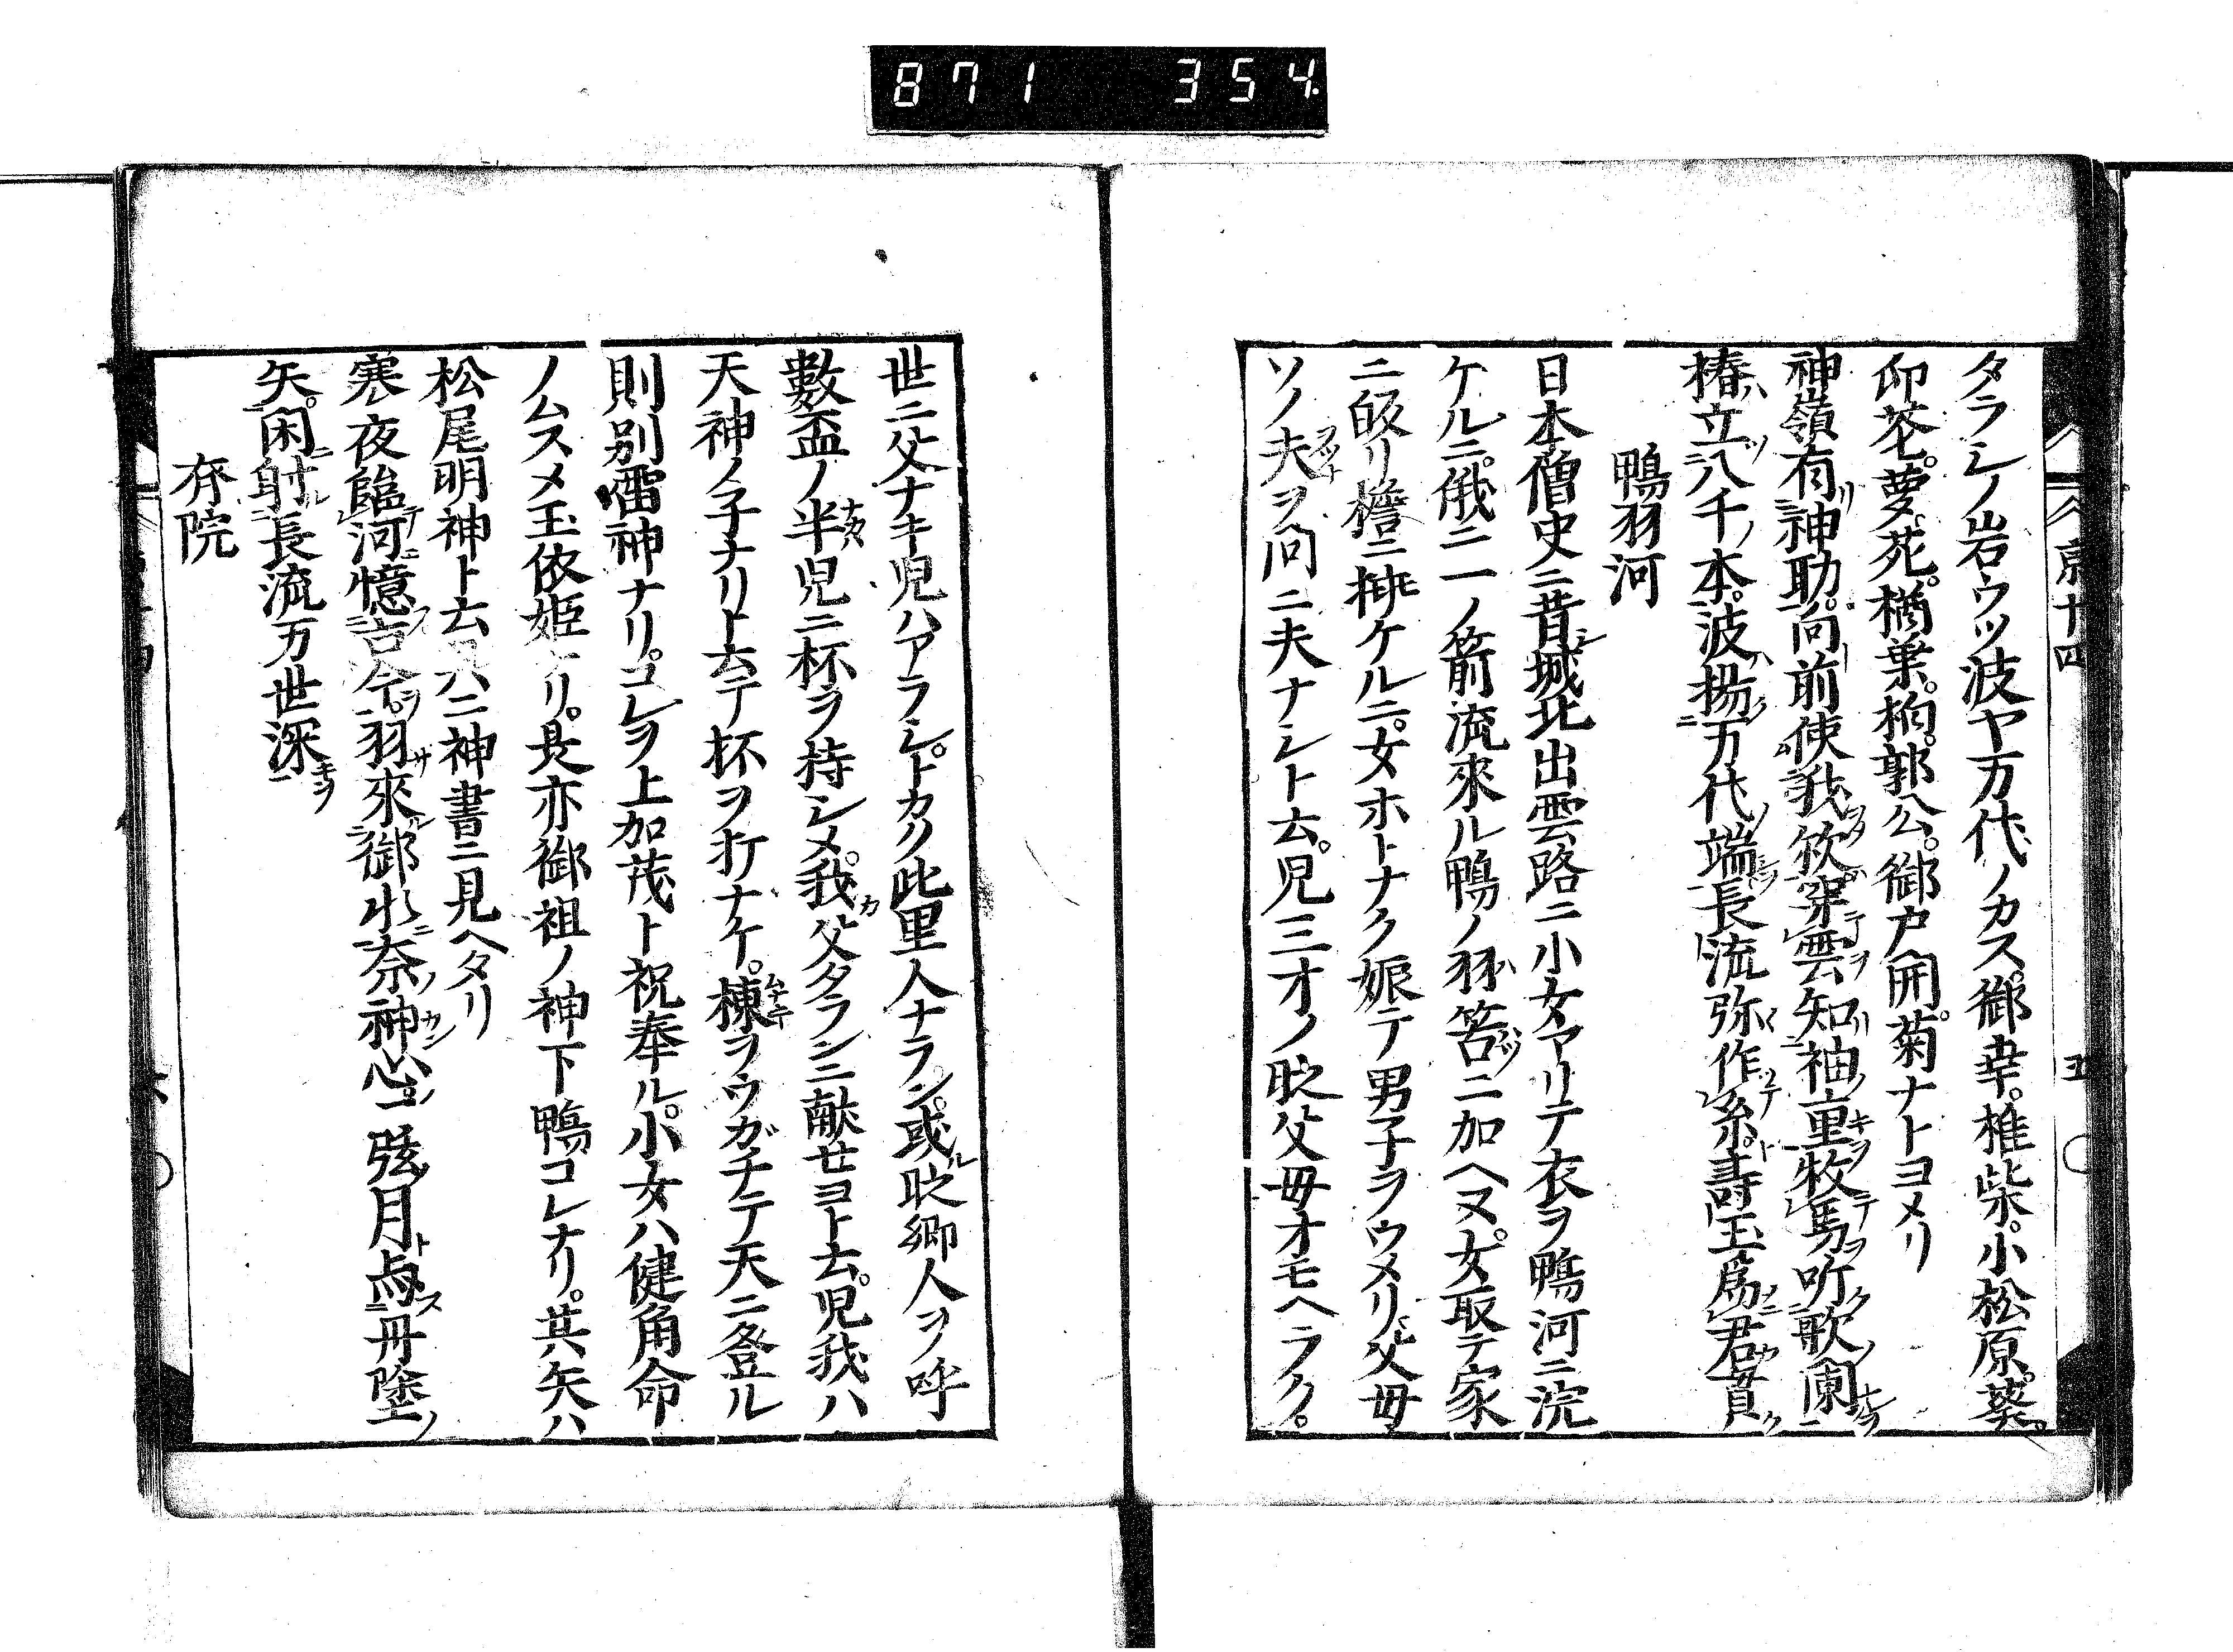 871 354
京十四 五
タラシノ岩ウツ波ヤ万代ノカス。御幸。椎柴。小松原。葵。
卯花。夢。苑。楢葉。柏。郭公。御戸開。菊ナトヨメリ
神嶺有神助。向前使我欲穿雲知神重牧馬吹歌闌
椿立八千本。波揚万代端長流弥作糸。壽玉為君貫
鴨羽河
日本僧史ニ昔城北出雲路ニ小女アリテ衣ヲ鴨河ニ浣
ケルニ。俄ニ一ノ箭流來ル鴨ノ羽筈ニ加ヘヌ。女取テ家
ニ皈リ檐ニ挿ケルニ。女ホトナク娠テ男子ヲウメリ。父毋
ソノ夫ヲ問ニ夫ナシト云。児三才ノ時父毋オモヘラク。
世ニ父ナキ児ハアラシ。トカク此里人ナラン。或時郷人ヲ呼
數盃ノ半児ニ杯ヲ持シメ。我父タランニ献セヨト云。児我ハ
天神ノ子ナリト云テ杯ヲ打ナケ。棟ヲウガチテ天ニ登ル
則別雷神ナリ。コレヲ上加茂ト祝奉ル。小女ハ健角命
ノムスメ玉依姫ナリ。是亦御祖ノ神下鴨コレナリ。其矢ハ
松尾明神ト云 ハ二神書ニ見ヘタリ
寒夜臨河憶古今。羽來御水奈神心。弦月与丹塗
矢。閑射長流万世深
斎院